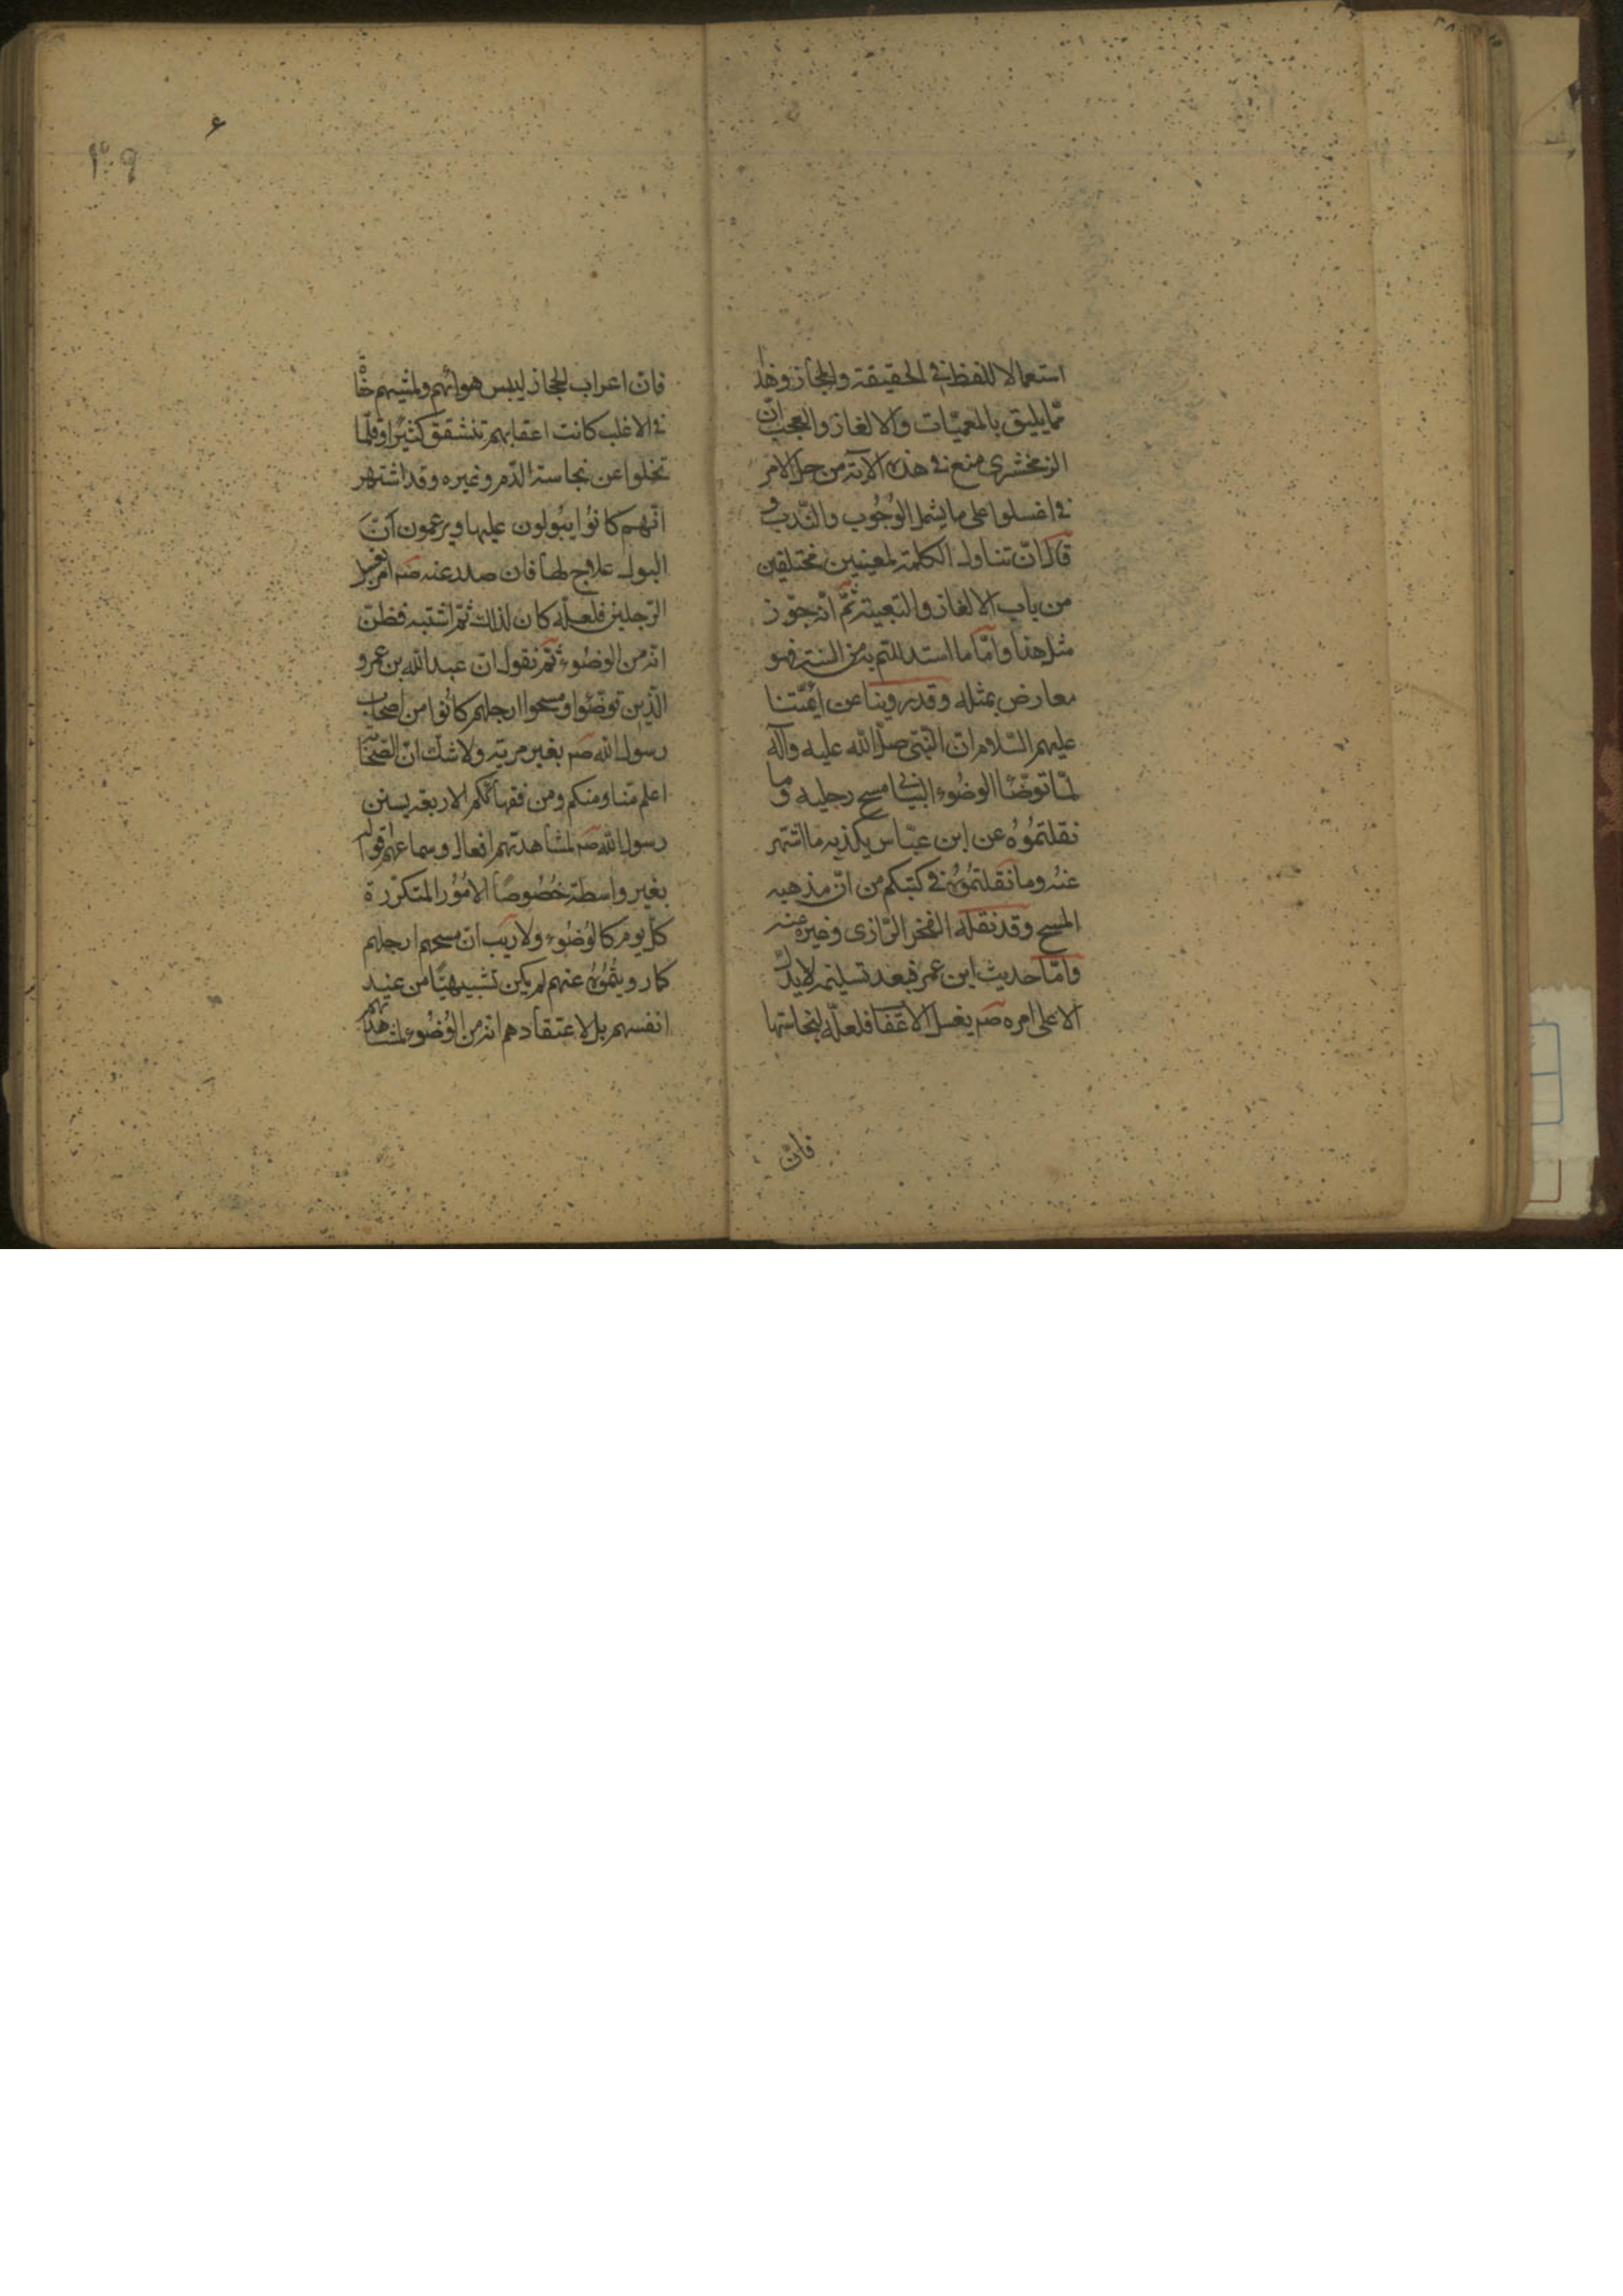 استعمالا للفظ في الحقيقة والمجاز وهذا
ممّا يليق بالمعميّات والالغاز والعجب انّ
الزمخشري منع في هذه الآية من حمل الامر
في اغسلوا على ما يشمل الوُجُوب والنّدب و
قال انّ تناول الكلمة لمعنيين مختلفين
من باب الالغاز والتعمية ثمّ انّه جوّز
مثل هذا وامّا ما استدللتم به من السنة فهو
معارض بمثله وقد روينا عن ائمّتنا
عليهم السّلام انّ النّبيّ صلّى الله عليه وآله
لمّا توضّأ الوضُوء البياني مسح رجليه وما
نقلتمُوهُ عن ابن عبّاس يكذبه ما اشتهر
عنهُ وما نقلتمُوهُ في كتبكم من انّ مذهبه
المسح وقد نقله الفخر الرّازى وغيره عنه
وامّا حديث ابن عمر فبعد تسليمه لا يدلّ
الا على امره صم بغسل الاعقاب فلعلّه لنجاستها
فانّ
۶
فانّ اعراب الحجاز ليبس هوائهم ولمشيهم حفاة
في الاغلب كانت اعقابهم تنشقق كثيرًا وقلّما
تخلوا عن نجاسة الدّم وغيره وقد اشتهر
انّهم كانوُا يبُولون عليها ويزعمون انّ
البول علاج لها فان صدر عنه صم امر بغسل
الرّجلين فلعلّه كان لذلك ثمّ اشتبه فظنّ
انّه من الوضُوء ثمّ نقول انّ عبد الله بن عمر و
الّذين توضّئوا ومسحوا ارجلهم كانُوا من اصحاب
رسول الله صم بغير مرية ولا شكّ انّ الصّحابة
اعلم منّا ومنكم ومن فقهائكم الاربعة بسنن
رسول الله صم لمشاهدتهم افعاله وسماعهم اقواله
بغير واسطة خُصُوصًا الامُوُر المتكرّرة
كلّ يوم كالوُضُوء ولا ريب انّ مسحهم ارجلهم
كما رويتمُوُهُ عنهم لم يكن تشبيهيًّا من عند
انفسهم بل لاعتقادهم انّه من الوُضُوء لمشاهدتهم